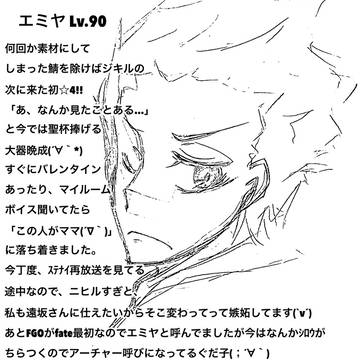 エミヤ Lv.90
何回か素材にして
しまった鯖を除けばジキルの
次に来た初☆4!!
「あ、なんか見たことある...」
と今では聖杯捧げる
大器晩成(´∀｀*)
すぐにバレンタイン
あったり、マイルーム
ボイス聞いてたら
「この人がママ(´∇｀)」
に落ち着きました。
今丁度、ｽﾃﾅｲ再放送を見てる
途中なので、ニヒルすぎと、
私も遠坂さんに仕えたいからそこ変わってって嫉妬してます(`∨´)
あとFGOがfate最初なのでエミヤと呼んでましたが今はなんかｼﾛｳが
ちらつくのでアーチャー呼びになってるぐだ子(；´∀｀)